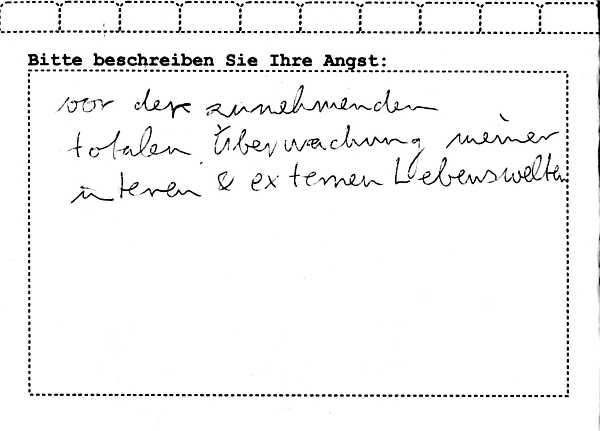 Bitte beschreiben Sie Ihre Angst:
vor der zunehmenden
totalen Überwachung meiner
internen & externen Lebenswelten